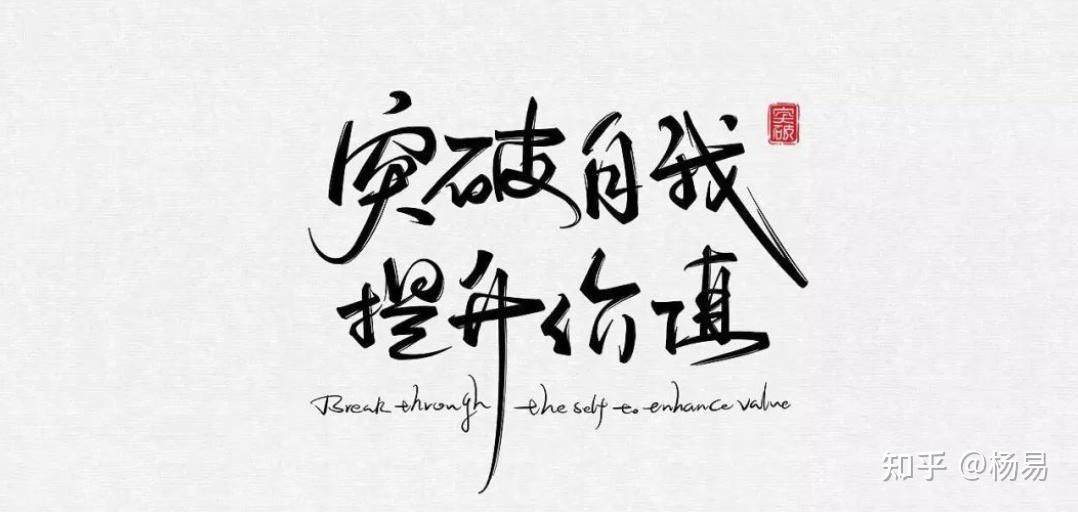 突破自我
突破
提升价值
Break through the self to enhance value
知乎 @杨易